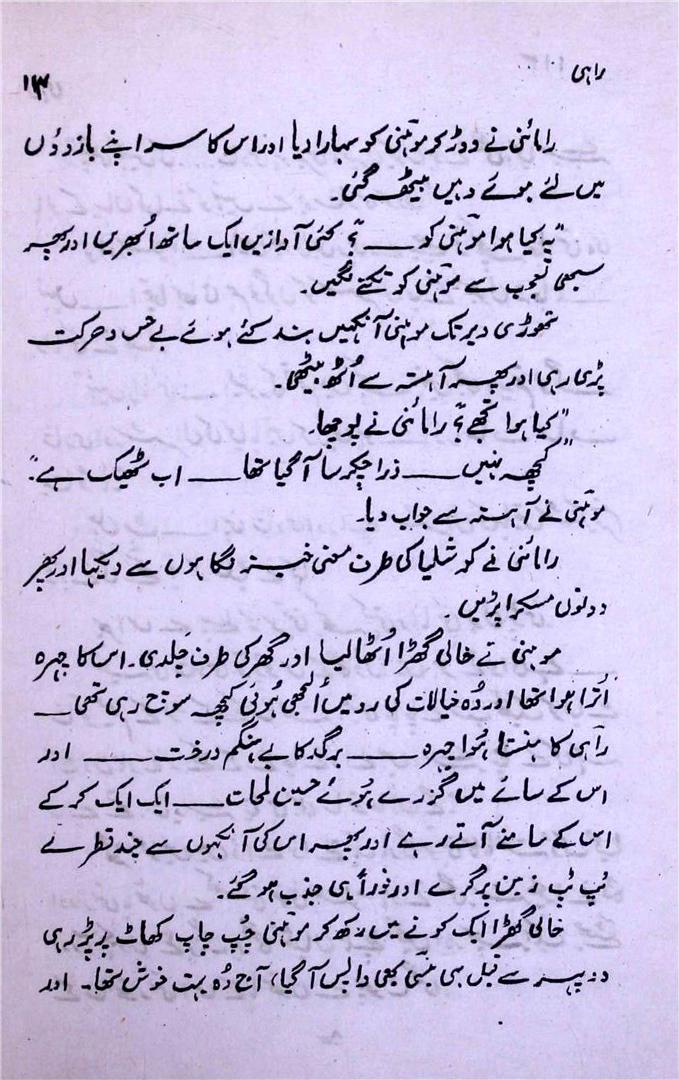 راہی
۱۳
رامائنی نے دوڑ کر موہنی کو سہارا دیا اور اس کا سر اپنے بازوؤں
میں لئے ہوئے وہیں بیٹھ گئی۔
"یہ کیا ہوا موہنی کو ـــــ ؟" کئی آوازیں ایک ساتھ اُبھریں اور پھر
سبھی تعجب سے موہنی کو تکنے لگیں۔
تھوڑی دیر تک موہنی آنکھیں بند کئے ہوئے بے حس و حرکت
پڑی رہی اور پھر آہستہ سے اُٹھ بیٹھی۔
"کیا ہوا تجھے؟" رامائنی نے پوچھا۔
"کچھ نہیں ـــــ ذرا چکر سا آ گیا تھا ـــــ اب ٹھیک ہے"۔
موہنی نے آہستہ سے جواب دیا۔
رامائنی نے کوشلیا کی طرف معنی خیز نگاہوں سے دیکھا اور پھر
دونوں مسکرا پڑیں۔
موہنی نے خالی گھڑا اُٹھا لیا اور گھر کی طرف چلدی۔ اس کا چہرہ
اُترا ہوا تھا اور وُہ خیالات کی رو میں اُلجھی ہُوئی کچھ سوچ رہی تھی ـــــ
راہی کا ہنستا ہُوا چہرہ ـــــ برگد کا بے ہنگم درخت ـــــ اور
اس کے سائے میں گزرے ہُوئے حسین لمحات ـــــ ایک ایک کر کے
اس کے سامنے آتے رہے اور پھر اس کی آنکھوں سے چند قطرے
ٹپ ٹپ زمین پر گرے اور فوراً ہی جذب ہو گئے۔
خالی گھڑا ایک کونے میں رکھ کر موہنی چُپ چاپ کھاٹ پر پڑ رہی
دوپہر سے قبل ہی بنسی بھی واپس آ گیا، آج وُہ بہت خوش تھا۔ اور